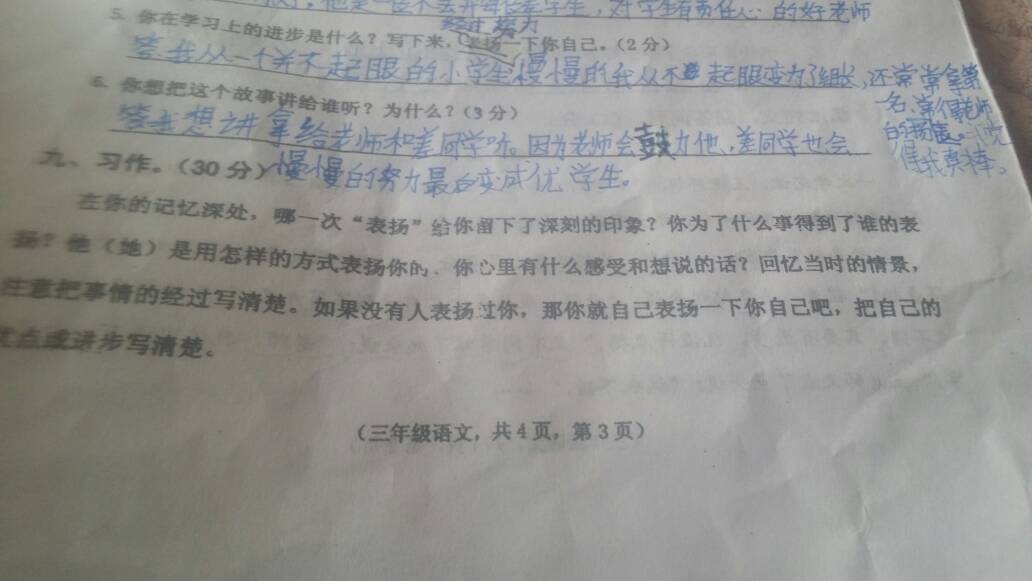 他是一位不丢弃每位差学生,对学生有责任心的好老师
5. 你在学习上的进步是什么？写下来，表扬一下你自己。（2分）
经过努力
答我从一个并不起眼的小学生慢慢的我从不起眼变为了组长,还常常拿第
一名,常得老师的表扬。
得我真棒。
6. 你想把这个故事讲给谁听？为什么？（3分）
答我想讲拿给老师和差同学听。因为老师会鼓力他,差同学也会
慢慢的努力最后变成优学生。
九、习作。（30分）
在你的记忆深处，哪一次“表扬”给你留下了深刻的印象？你为了什么事得到了谁的表
扬？他（她）是用怎样的方式表扬你的，你心里有什么感受和想说的话？回忆当时的情景，
注意把事情的经过写清楚。如果没有人表扬过你，那你就自己表扬一下你自己吧，把自己的
优点或进步写清楚。
（三年级语文，共4页，第3页）